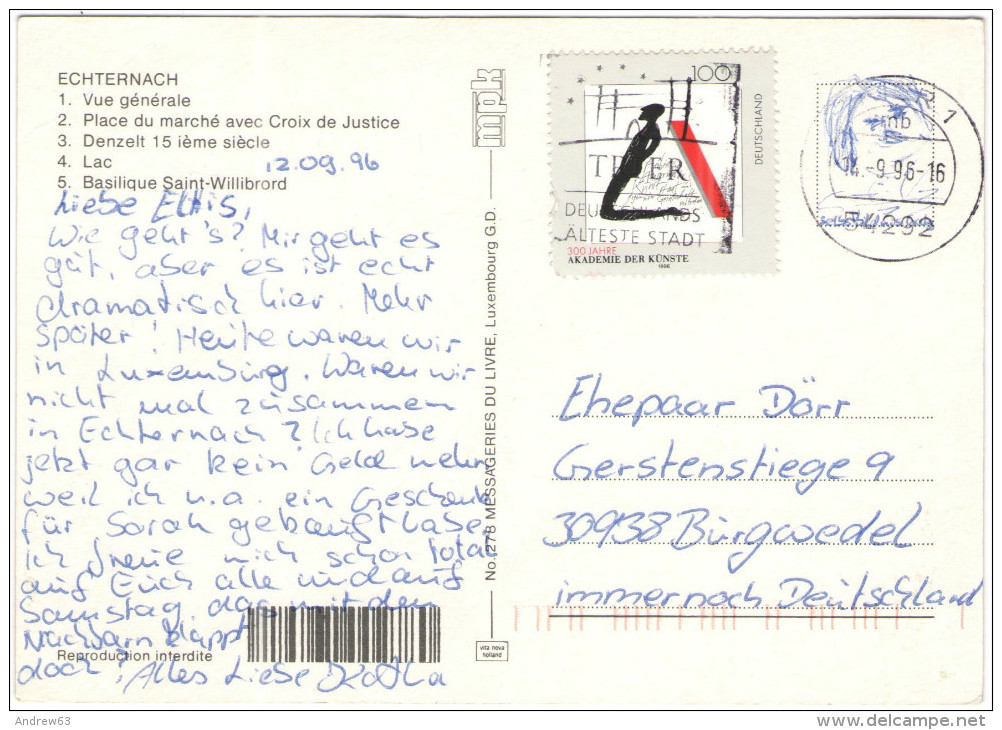 ECHTERNACH
1. Vue générale
2. Place du marché avec Croix de Justice
3. Denzelt 15 ième siècle
4. Lac
5. Basilique Saint-Willibrord
12.09.96
Liebe Eltis,
Wie geht's? Mir geht es
gut, aber es ist echt
dramatisch hier. Mehr
später! Heute waren wir
in Luxemburg. Waren wir
nicht mal zusammen
in Echternach? Ich habe
jetzt gar kein Geld mehr
weil ich u.a. ein Geschenk
für Sarah gekauft habe.
Ich freue mich schon total
auf Euch alle und auf
Samstag, das mit dem
Nachbarn klappt
doch? Alles Liebe
Reproduction interdite
mpk
No. 278 MESSAGERIES DU LIVRE, Luxembourg G.D.
vita nova
holland
100
DEUTSCHLAND
TRIER
DEUTSCHLANDS
ÄLTESTE STADT
300 JAHRE
AKADEMIE DER KÜNSTE
1996
1
mb
14.-9.96-16
54292
Ehepaar Dörr
Gerstenstiege 9
30938 Burgwedel
immer noch Deutschland
Andrew63
www.delcampe.net